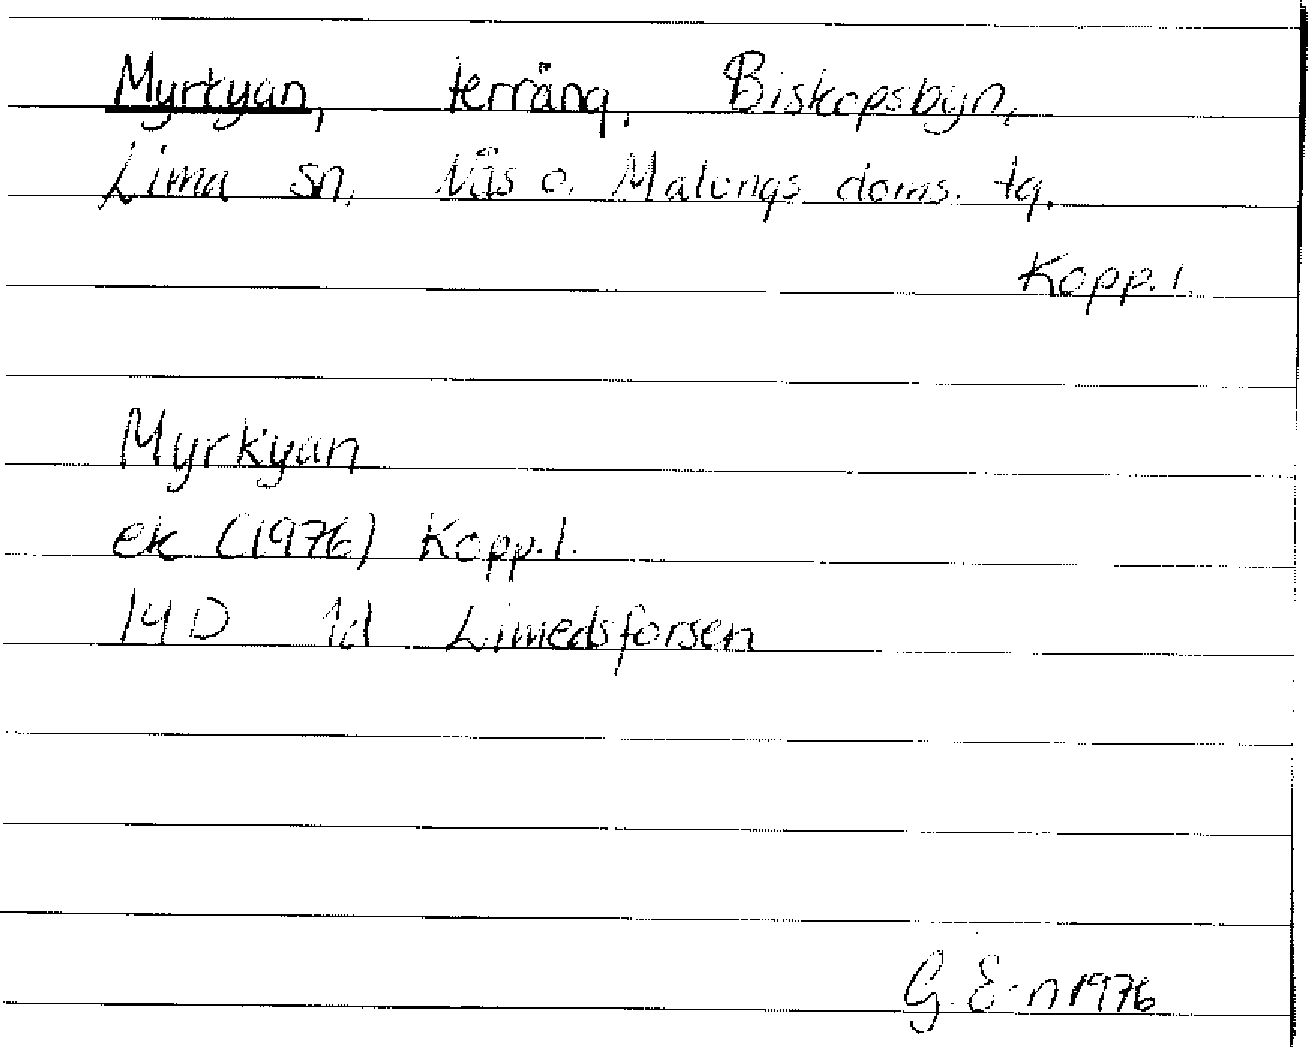 Myrkyan, terräng, Biskopsbyn,
Lima sn, Nås o. Malungs doms. tg.
Kopp. l.
Myrkyan
ek (1976) Kopp. l.
14D 1d Limedsforsen
G. E-n 1976